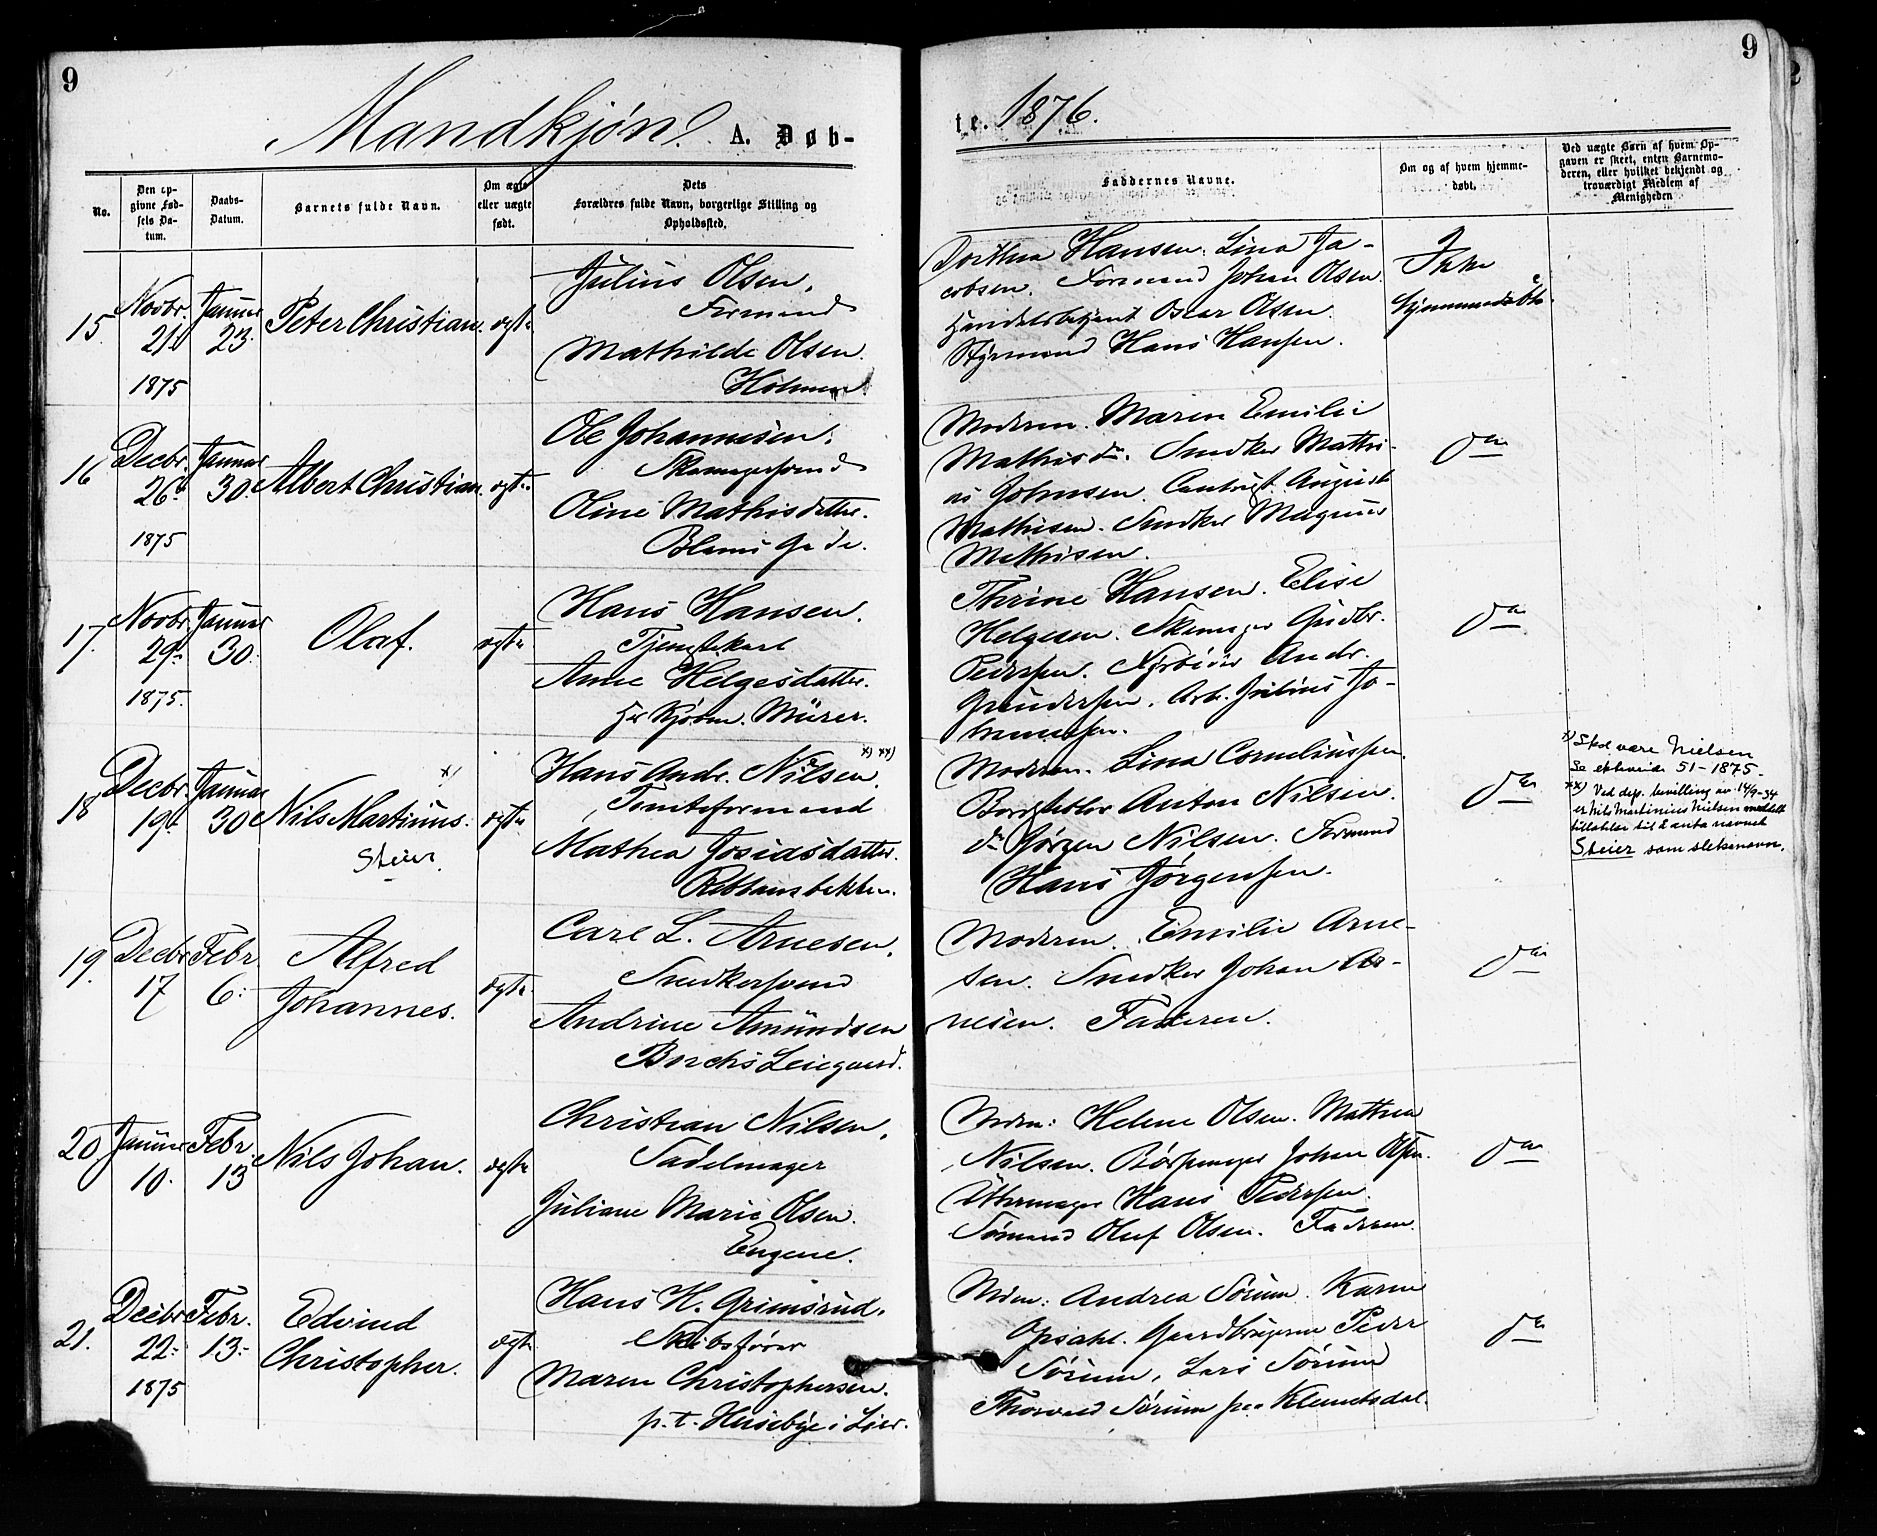 9
Mandkjøn. A. Døb-
No.
Den opgivne Fødsels Datum.
Daabs-Datum.
Barnets fulde Navn.
Om ægte eller uægte født.
Dets Forældres fulde Navn, borgerlige Stilling og Opholdssted.
15.
Novbr.
21.
1875
Januar
23.
Peter Christian.
ægte
Julius Olsen.
Formand
Mathilde Olsen.
Holmen
16
Decbr.
26.
1875
Januar
30.
Albert Christian.
ægte
Ole Johannesen.
Skomagersvend
Oline Mathisdatter.
17.
Novbr.
29.
1875.
Januar
30.
Olaf.
ægte
Hans Hansen.
Tjenstekarl
Anne Helgesdatter.
18
Decbr.
19.
Januar
30
x)
Nils Martinus.
Steier.
ægte
Hans Andr. Nilsen. x) xx)
Tomteformand
Mathea Josiasdatter.
19.
Decbr
17
Febr.
6.
Alfred
Johannes.
ægte
Carl L. Arnesen.
Snedkersvend
Andrine Amundsen
Buchs Leiegaard.
20
Januar
10.
Febr.
13
Nils Johan.
ægte
Christian Nilsen.
Sadelmager
Juliane Marie Olsen.
Engene.
21.
Decbr
22.
1875
Febr.
13.
Edvind
Christopher.
ægte
Hans H. Grimsrud.
Skibsfører
Maren Christophersen.
p.t. Husebye i Lier.
9
te. 1876.
Faddernes Navne.
Om og af hvem hjemmedøbt.
Ved uægte Børn af hvem Opgaven er skeet, enten Barnemoderen, eller hvilket bekjendt og troværdigt Medlem af Menigheden
Dorthea Hansen. Lina Ja-
cobsen. Formand Johan Olsen.
Handelsbetjent Oscar Olsen.
Styrmand Hans Hansen.
Ikke
hjemmedøbt.
Moderen. Maren Emilie
Mathisdr. Snedker Mathi-
as Johnsen. August
Mathisen. Snedker Magnus
Mathisen.
do
Thrine Hansen. Elise
Helgesen. Skomager Gudbr.
Pedersen. Andr.
Gundersen. Arb. Julius Jo-
hannesen.
do
Moderen. Lina Corneliussen.
Anton Nilsen.
do Jørgen Nilsen. Formand
Hans Jørgensen.
do
x) Skal være Nielsen
Se ekteviede 51-1875.
xx) Ved dep. bevilling av 14/9-34
er Nils Martinius Nielsen meddelt
tillatelse til å anta navnet
Steier som slektsnavn.
Moderen. Emilie Arne-
sen. Snedker Johan Ar-
nesen. Faderen.
do
Mdrn: Helene Olsen. Mathea
Nilsen. Børsemager Johan Olsen.
Uhrmager Hans Pedersen.
Sømand Oluf Olsen. Faderen.
do
Mdrn: Andrea Sørum. Karen
Opsahl. Gaardbrugerne Peder
Sørum, Lars Sørum
Thorvald Sørum paa Klemetsdal.
do